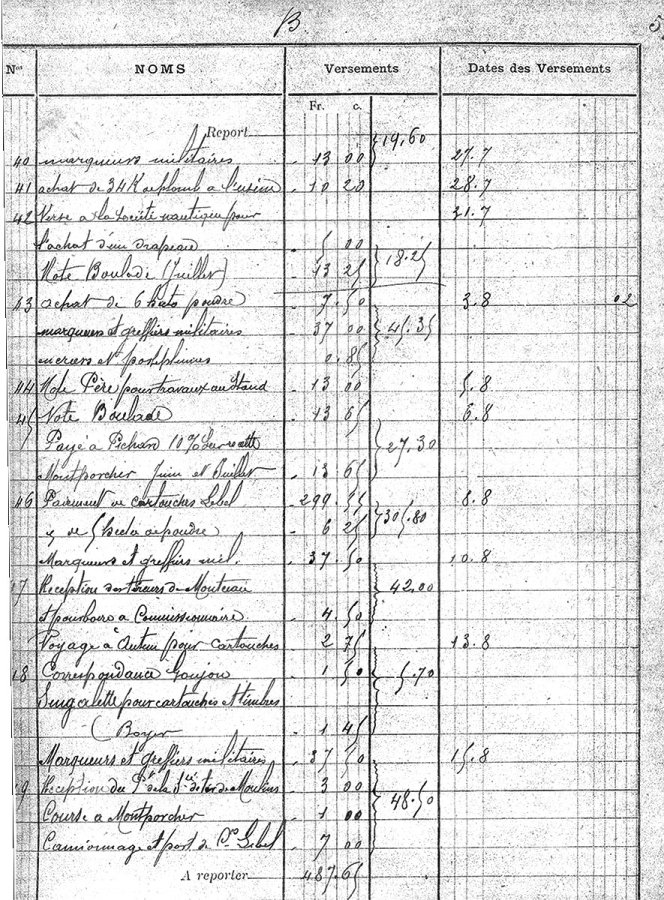 B.
Nos NOMS Versements Dates des Versements
Fr. c.
Report 19,60
40 marqueurs militaires 13 00 27.7
41 achat de 34 K de plomb a l'usine 10 20 28.7
42 Versé a la Société nautique pour 31.7
l'achat d'un drapeau 5 00
Note Boulade (Juillet) 13 25 18.25
43 achat de 6 hecto poudre 7.50 3.8 02
marqueurs et greffiers militaires 37 00 45.35
encriers et porteplumes 0.85
44 Note Père pour travaux au Stand 13 00 5.8
45 Note Boulade 13 65 6.8
Payé à Pichard 10% sur recette 27.30
Montporcher Juin et Juillet 13 65
46 Paiement de cartouches Lebel 299.55 8.8
de 5 hecto de poudre 6 25 305.80
Marqueurs et greffiers mil. 37.50 10.8
17 Réception des tireurs de 42.00
et pourboire a Commissionnaire 4.50
Voyage à Autun pour cartouches 2 75 13.8
18 Correspondance Goujon 1 50 5.70
pour cartouches et timbres
(Boyer 1 45
Marqueurs et greffiers militaires 37 50 15.8
19 Réception du Pt de la Sté de tir de Moulins 3 00
Course a Montporcher 1 00 48.50
Camionnage et port de Lebel 7 00
A reporter 487.65